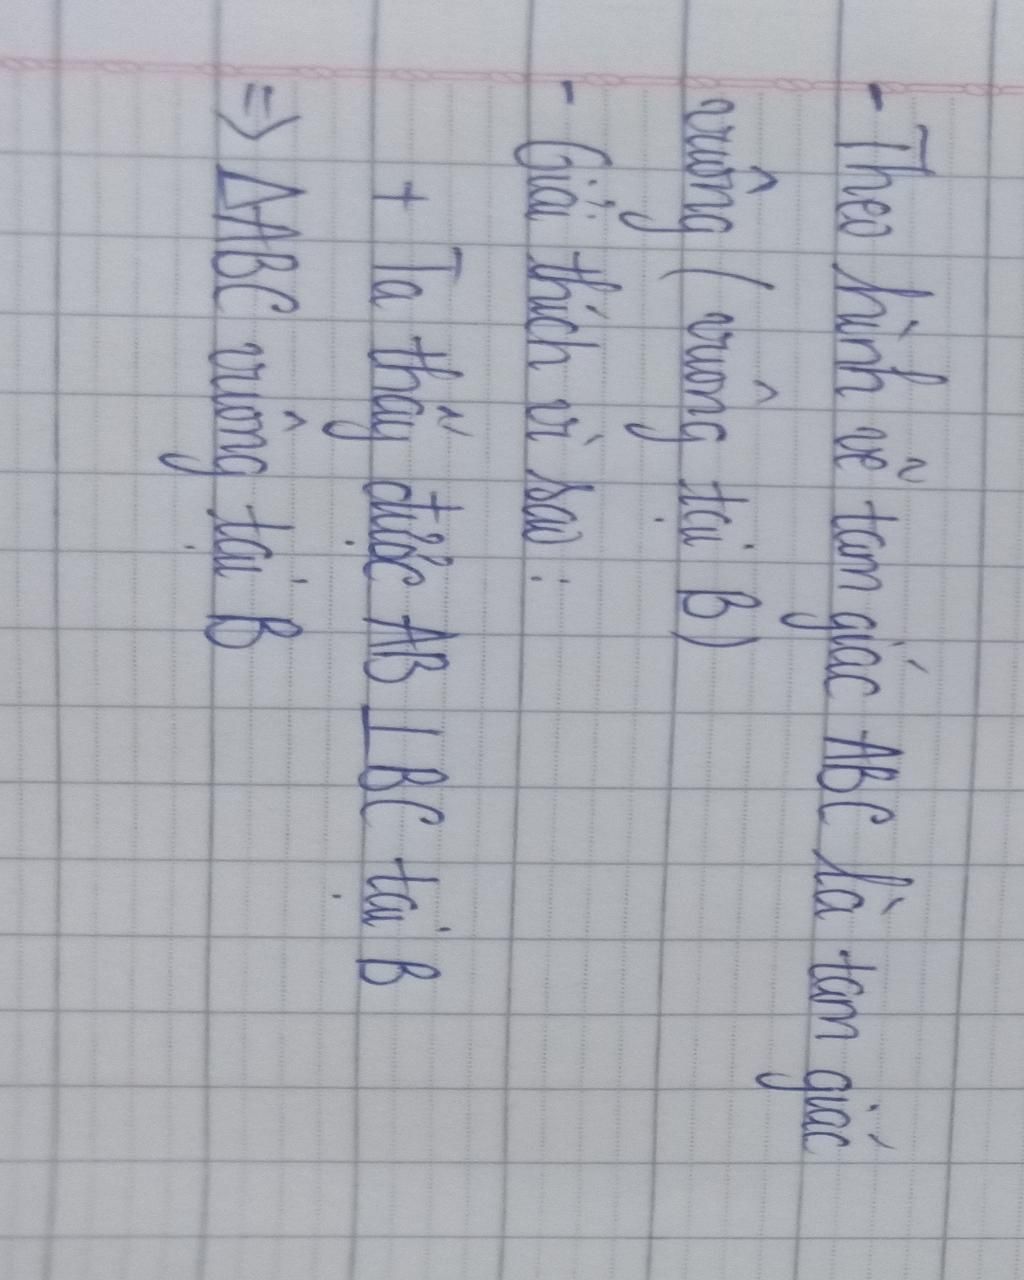 - Theo hình vẽ tam giác ABC là tam giác
vuông ( vuông tại B)
- Giải thích vì sao :
+ Ta thấy được AB ⊥ BC tại B
=> ΔABC vuông tại B